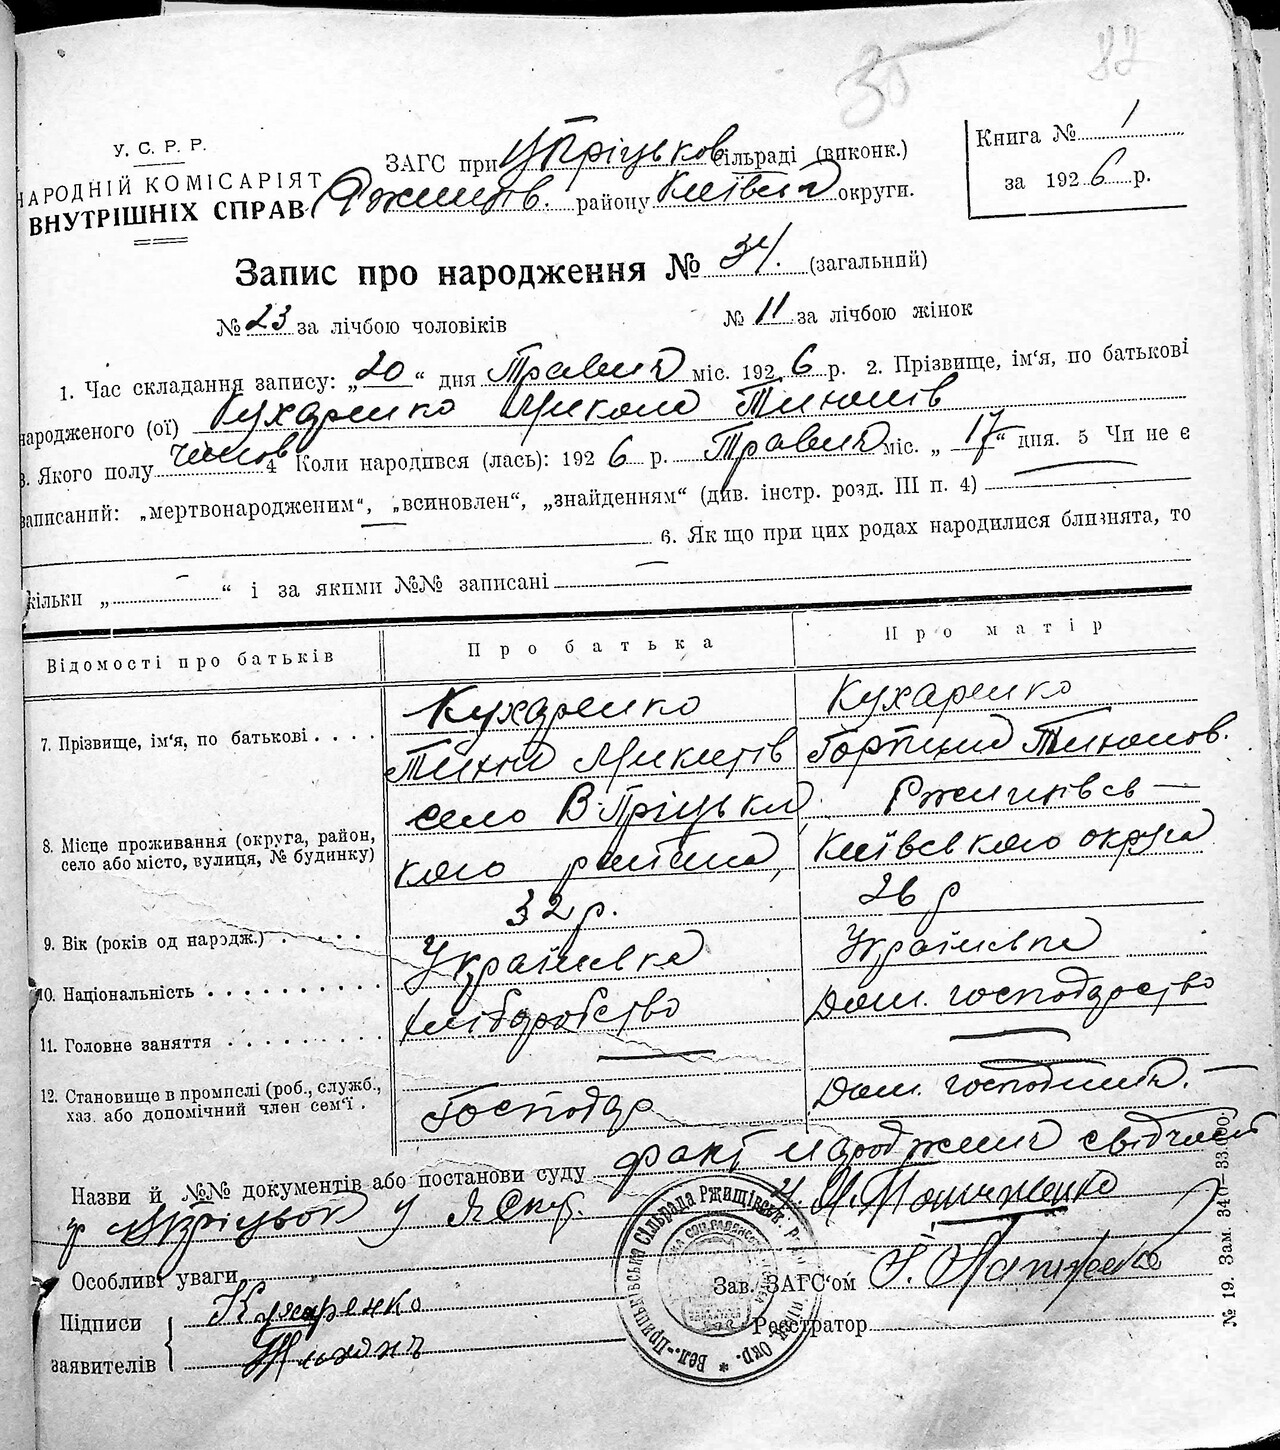 35 82
У. С. Р. Р.
НАРОДНІЙ КОМІСАРІЯТ
ВНУТРІШНІХ СПРАВ
ЗАГС при сільраді (виконк.)
Ржищів. району Київськ округи.
Книга № 1
за 1926 р.
Запис про народження № 34. (загальний)
№ 23 за лічбою чоловіків № 11 за лічбою жінок
1. Час складання запису: „20“ дня Травня міс. 1926 р. 2. Прізвище, ім‘я, по батькові
народженого (ої) Кухаренко Микола Тихонів
3. Якого полу чолов 4 Коли народився (лась): 1926 р. Травня міс. „17“ дня. 5 Чи не є
записаний: „мертвонародженим“, „всиновлен“, „знайденням“ (див. інстр. розд. III п. 4) —
— 6. Як що при цих родах народилися близнята, то
скільки „ — “ і за якими №№ записані —
Відомості про батьків Про батька Про матір
7. Прізвище, ім‘я, по батькові . . . . Кухаренко Кухаренко
Тихон Микитів Горпина Тихонов.
8. Місце проживання (округа, район, село або місто, вулиця, № будинку) село В-Пріцьки, Ржищівсь—
кого района, Київського округа
9. Вік (років од народж.) . . . . . 32 р. 26 р
10. Національність . . . . . . . . . . Українська Українка
11. Головне заняття . . . . . . . . . Хліборобство Дом. господарство
12. Становище в промислі (роб., служб., хаз. або допомічний член сем‘ї . Господар Дом. господиня. —
Назви й №№ документів або постанови суду факт народження свідчать
Особливі уваги
Зав. ЗАГС‘ом
Підписи заявителів { Кухаренко
Тихонъ
Реєстратор
Вел.-Прицьківська Сільрада Ржищівськ. р.
Окр. *
№ 19. Зам. 340—33.000.